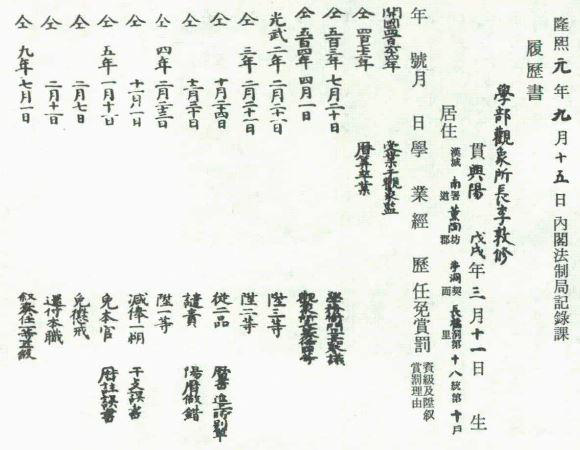 隆熙元年九月十五日 內閣法制局記錄課
履歷書
學部觀象所長李敦修
貫 興陽 戊戌年三月十一日 生
居住 漢城 南署 薰陶坊 契 長橋洞第十八統第十戶
道 郡 面 里
年號月日 學業經歷 任免賞罰 資級及陞叙賞罰理由
開國四百 年 受業于觀象監
仝 四百七十三年 曆算卒業
仝 五百三年七月二十日
仝 五百四年四月一日 觀象所長
光武二年二月二十八日 陞三等
仝 三年二月二十一日 陞二等
仝 十月二十四日 從二品 曆書進 別單
仝 十二月二十日 譴責 陽曆做錯
仝 四年一月二十三日 陞一等
仝 十一月一日 減俸一朔 干支誤書
仝 五年一月十日 免本官 曆註誤書
仝 二月七日 免懲戒
仝 二月十日 還付本職
仝 九年七月一日 叙奏任一等五級